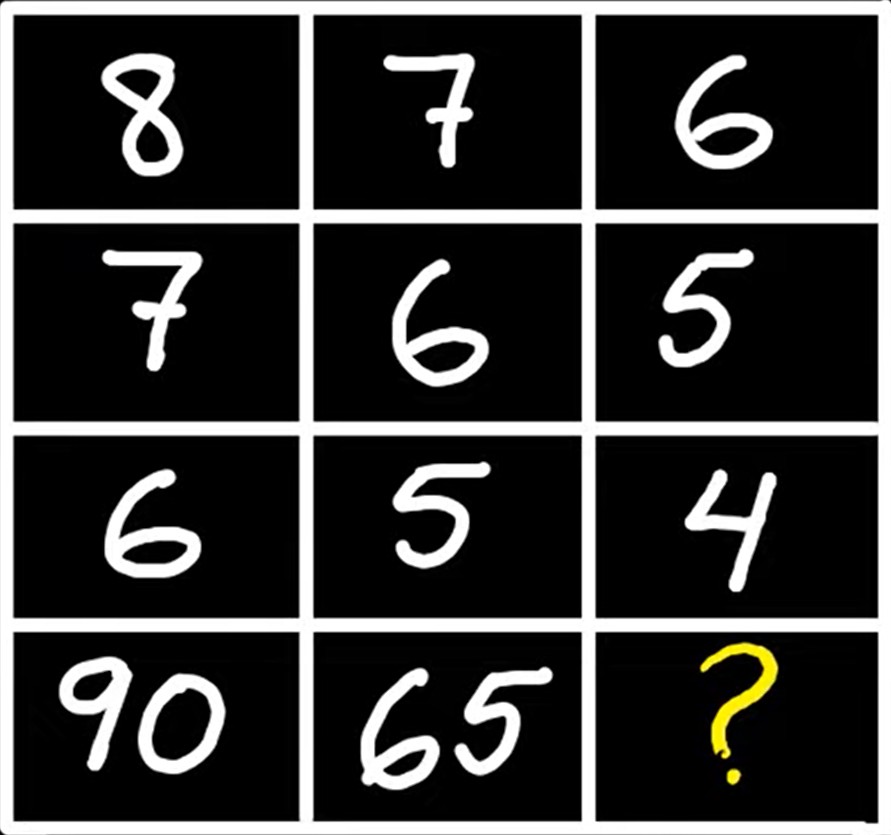 8 7 6
7 6 5
6 5 4
90 65 ?